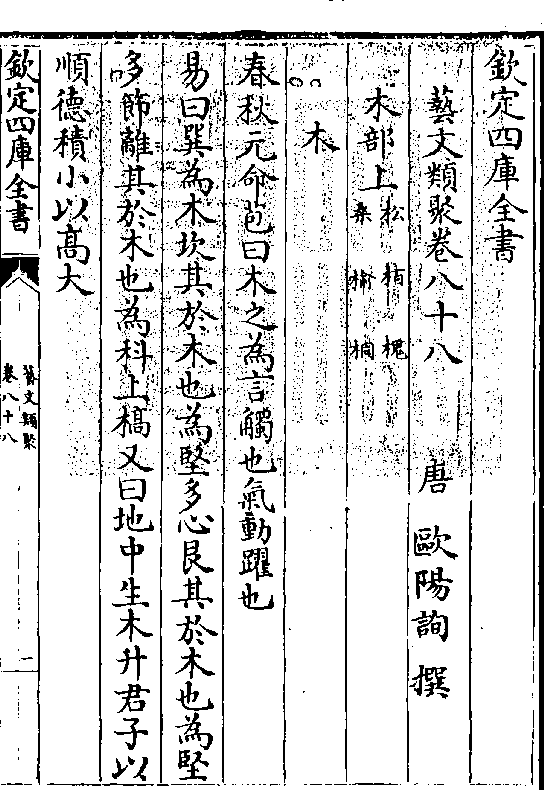 欽定四庫全書
藝文類聚卷八十八
唐　歐陽詢　撰
木部上
松　柏　槐
桑　榆　桐
木
春秋元命苞曰木之為言觸也氣動躍也
易曰巽為木坎其於木也為堅多心艮其於木也為堅
多節離其於木也為科上槁又曰地中生木升君子以
順德積小以髙大
欽定四庫全書
藝文類聚
卷八十八
一